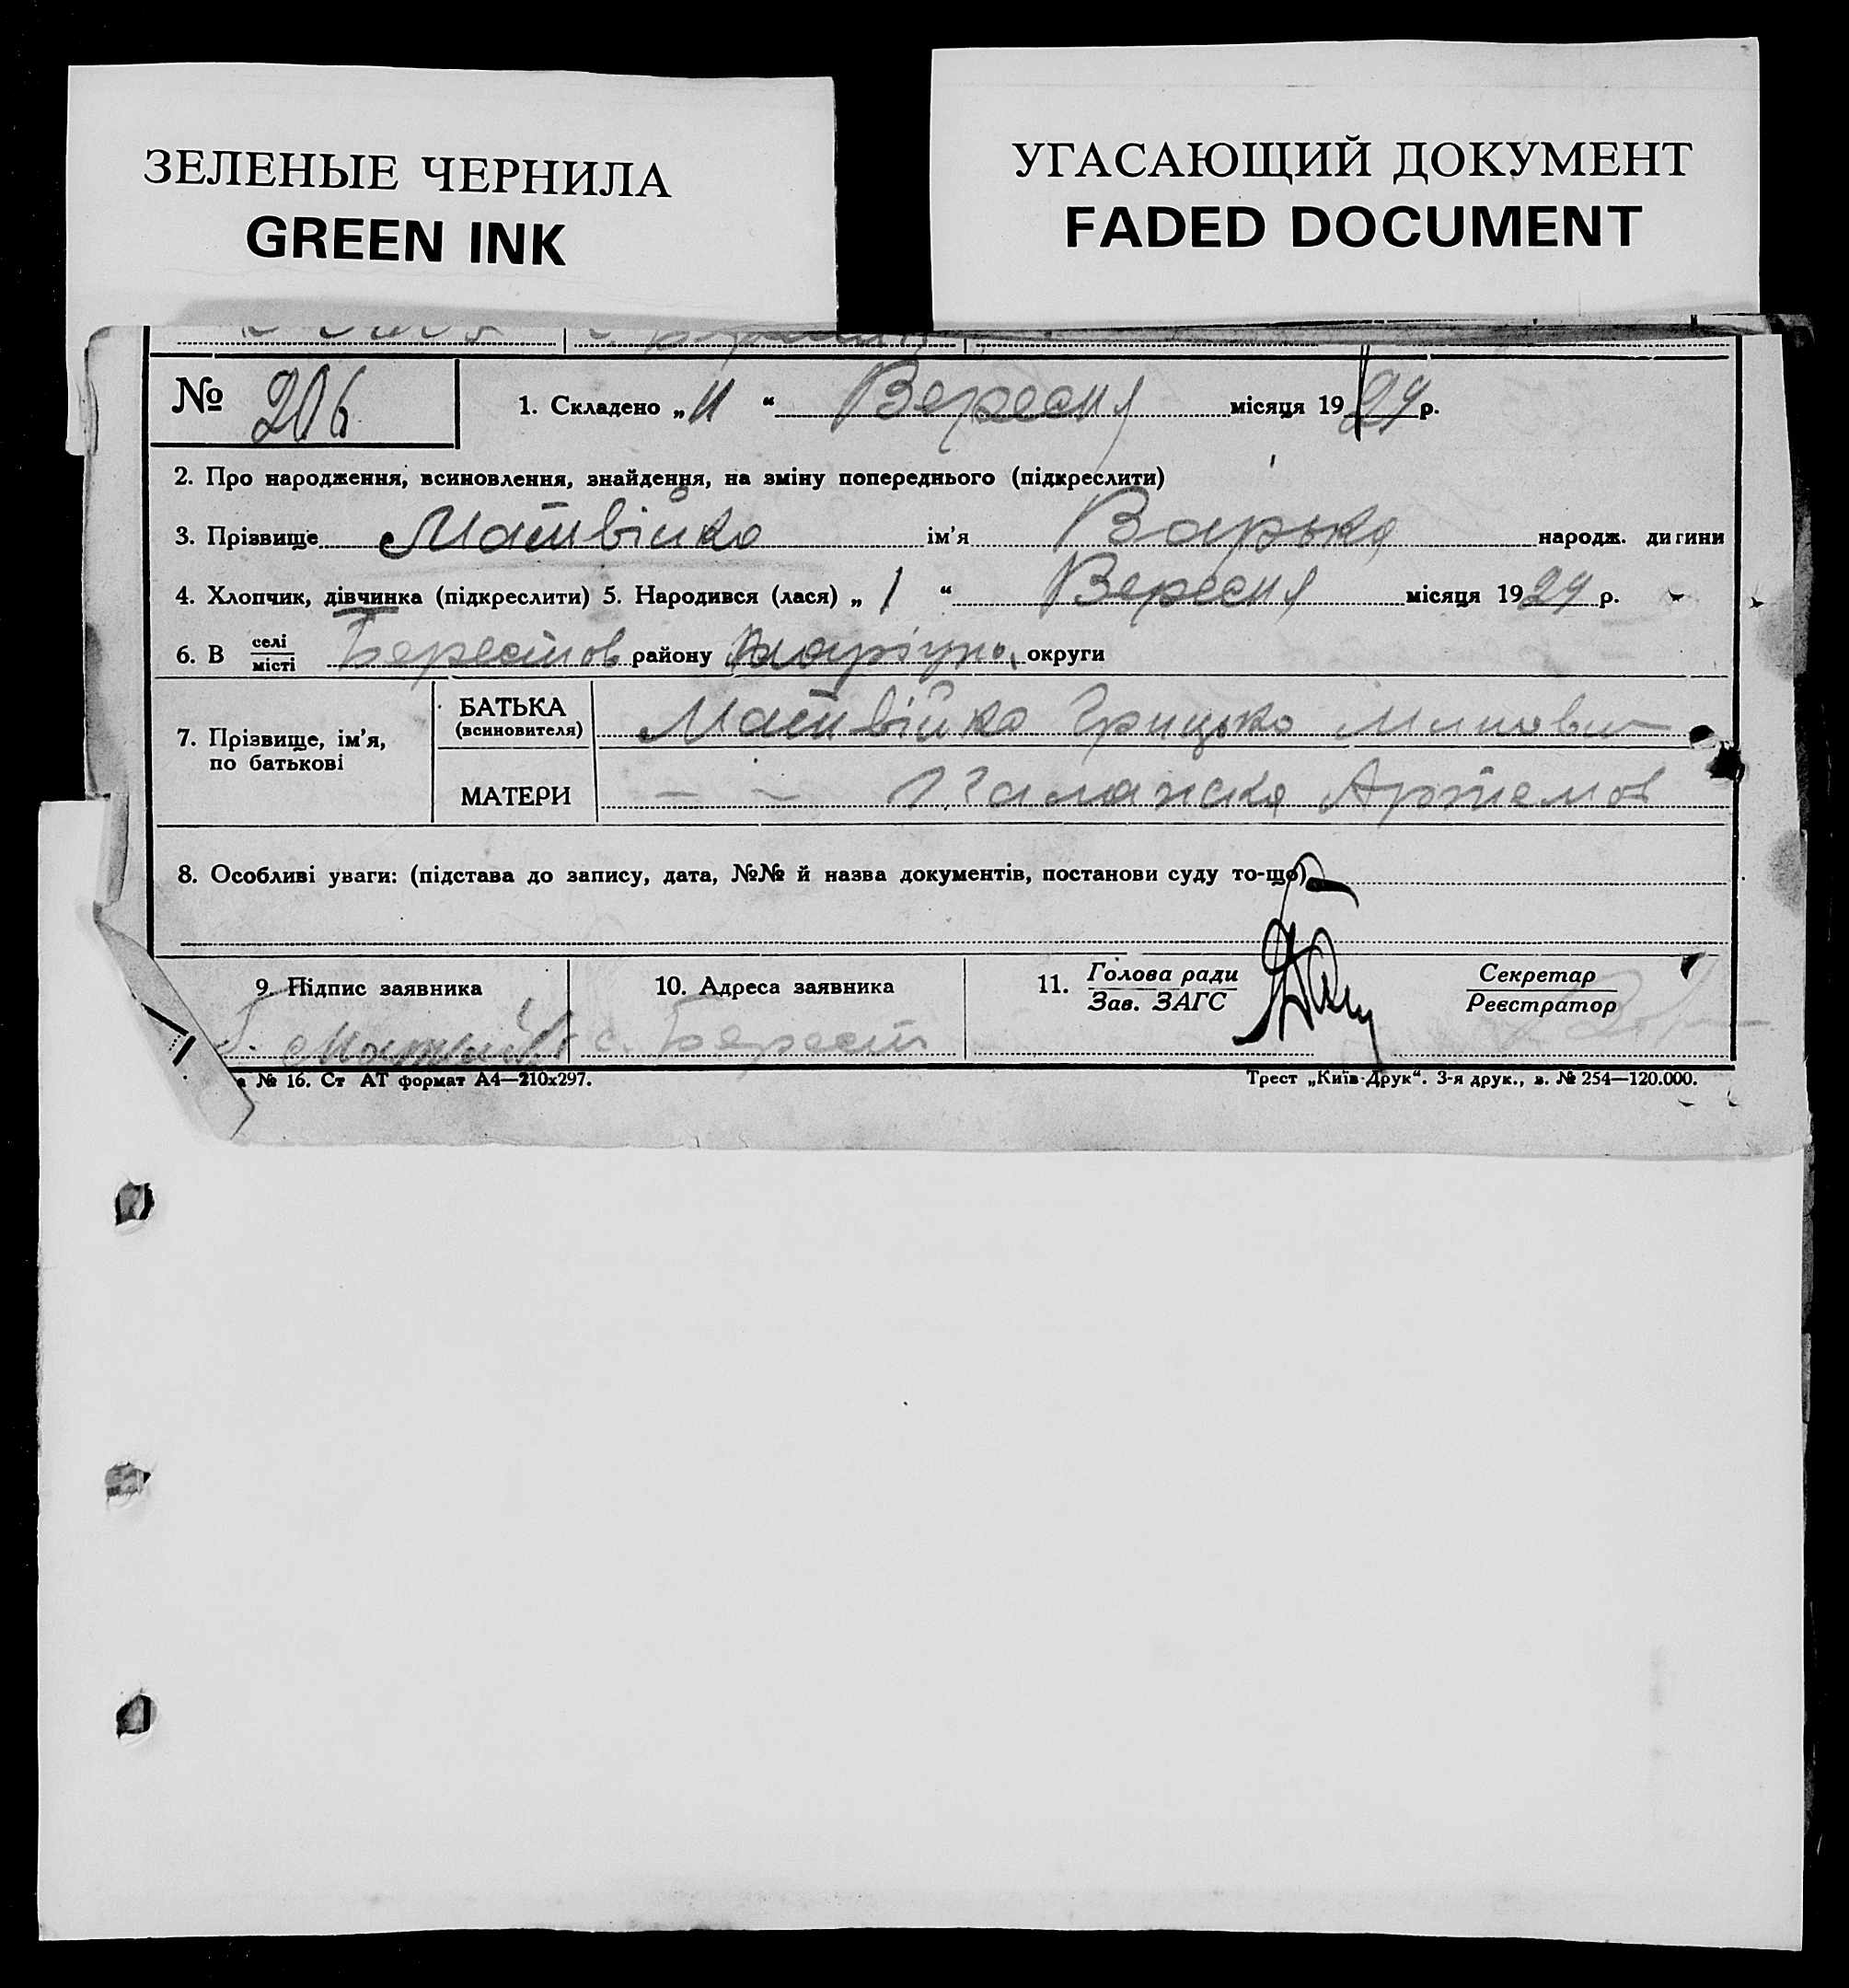 ЗЕЛЕНЫЕ ЧЕРНИЛА
GREEN INK
УГАСАЮЩИЙ ДОКУМЕНТ
FADED DOCUMENT
№ 206 1. Складено „ 11 “ Вересня місяця 1929 р.
2. Про народження, всиновлення, знайдення, на зміну попереднього (підкреслити)
3. Прізвище Матвійко ім'я Варька народж. дитини
4. Хлопчик, дівчинка (підкреслити) 5. Народився (лася) „ 1 “ Вересня місяця 1929 р.
6. В селі місті Берестов району Маріуп. округи
7. Прізвище, ім'я, по батькові
БАТЬКА (всиновителя) Матвійко Грицько
МАТЕРИ — — Артемов
8. Особливі уваги: (підстава до запису, дата, №№ й назва документів, постанови суду то-що)
9. Підпис заявника
10. Адреса заявника
11. Голова ради Зав. ЗАГС
Секретар Реєстратор
с. Берест
№ 16. Ст АТ формат А4—210х297.
Трест „Київ-Друк“. 3-я друк., з. № 254—120.000.